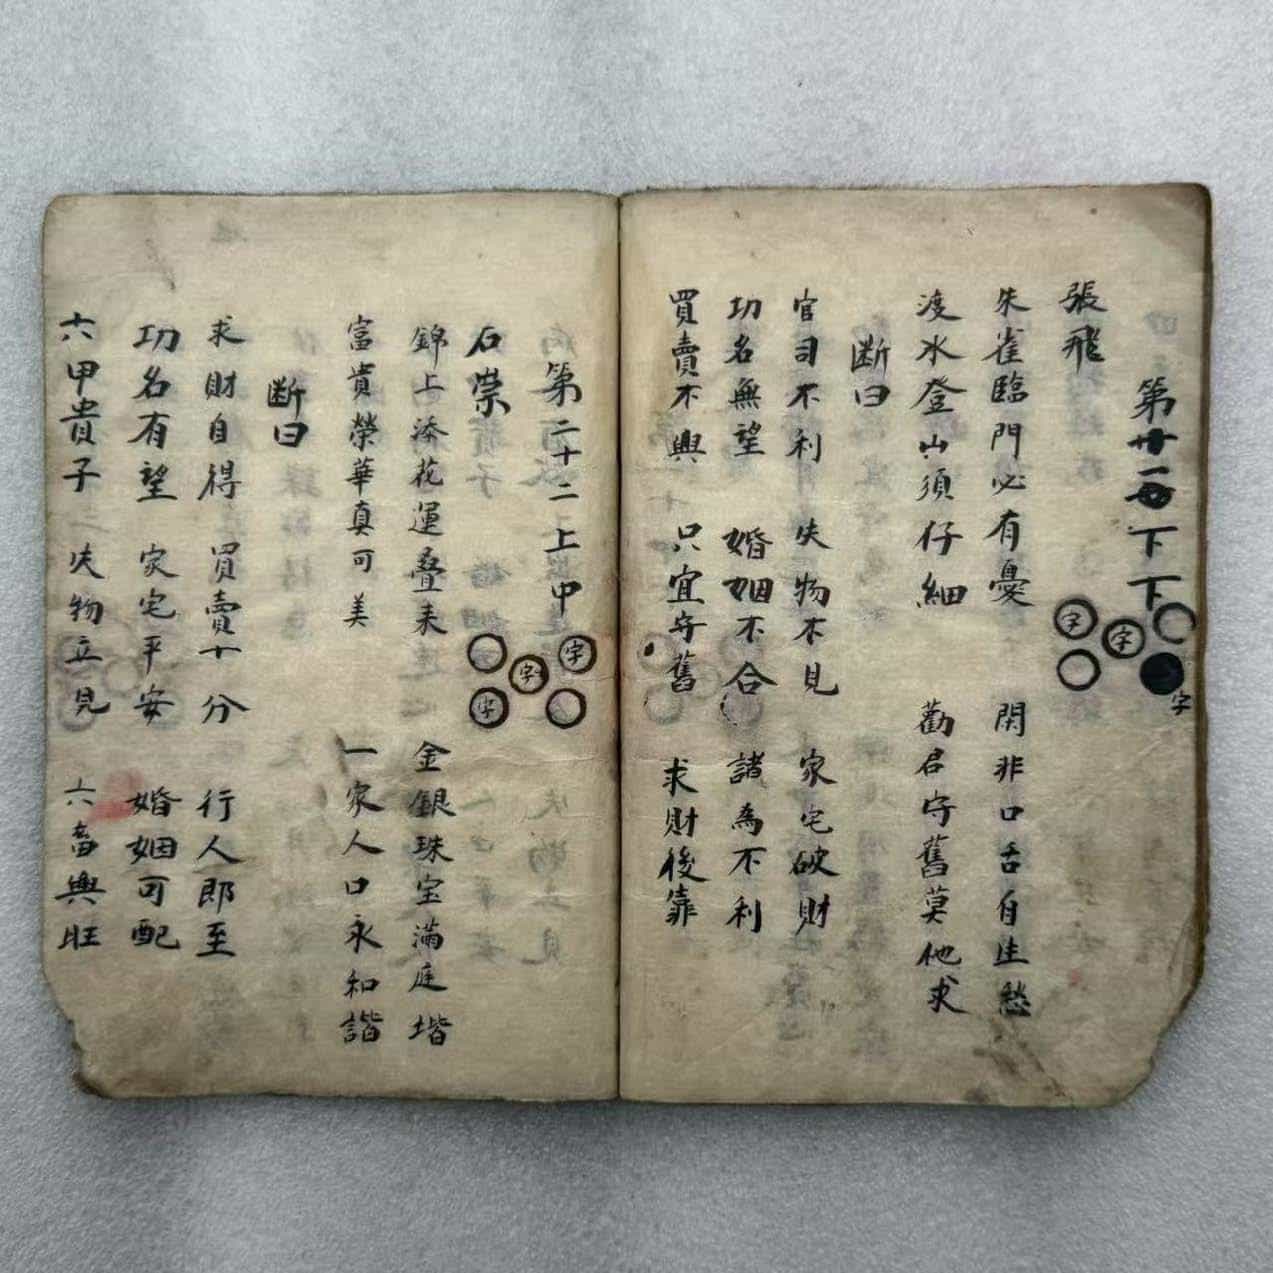 第廿一 下下
字 字 字
張飛
朱雀臨門必有憂 閑非口舌自生愁
渡水登山須仔細 勸君守舊莫他求
断曰
官司不利 失物不見 家宅破財
功名無望 婚姻不合 諸為不利
買賣不興 只宜守舊 求財後靠
第二十二 上中
字 字 字
石崇
錦上添花運叠来 金銀珠宝滿庭堦
富貴榮華真可美 一家人口永和諧
断曰
求財自得 買賣十分 行人即至
功名有望 家宅平安 婚姻可配
六甲貴子 失物立見 六畜興旺